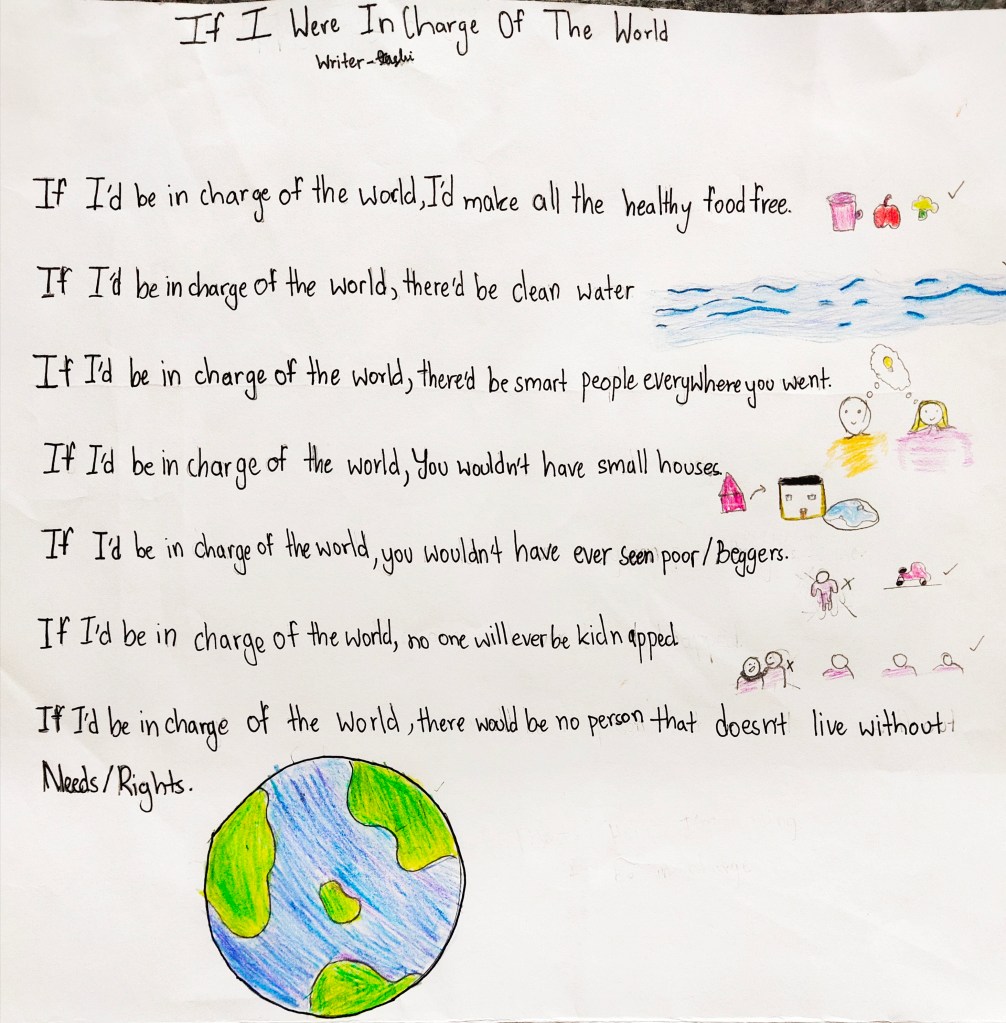 If I Were In Charge Of The World
Writer-
If I'd be in charge of the world, I'd make all the healthy food free.
If I'd be in charge of the world, there'd be clean water
If I'd be in charge of the world, there'd be smart people everywhere you went.
If I'd be in charge of the world, You wouldn't have small houses.
If I'd be in charge of the world, you wouldn't have ever seen poor/Beggers.
If I'd be in charge of the world, no one will ever be kidnapped
If I'd be in charge of the world, there would be no person that doesn't live without
Needs/Rights.